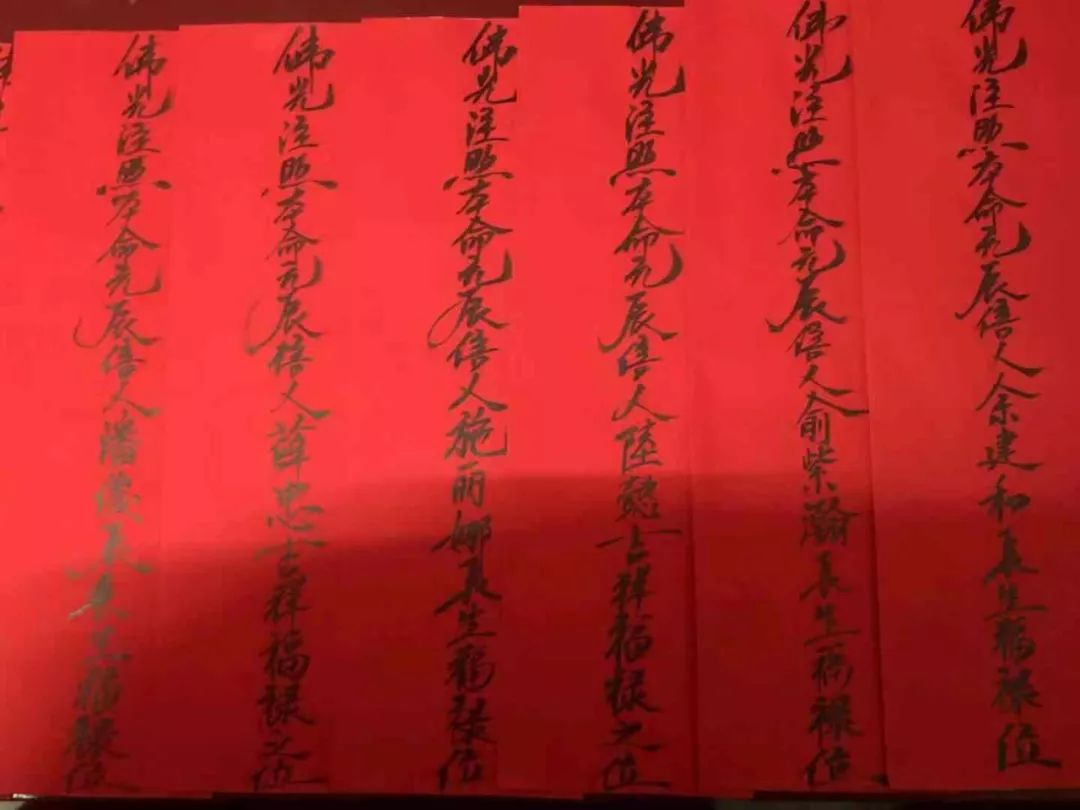 佛光注照本命元辰信人余建和長生福祿位
佛光注照本命元辰信人俞紫瀚長生福祿位
佛光注照本命元辰信人陸懿吉祥福祿之位
佛光注照本命元辰信人施丽娜長生福祿位
佛光注照本命元辰信人薛忠吉祥福祿之位
佛光注照本命元辰信人潘辰長生福祿位